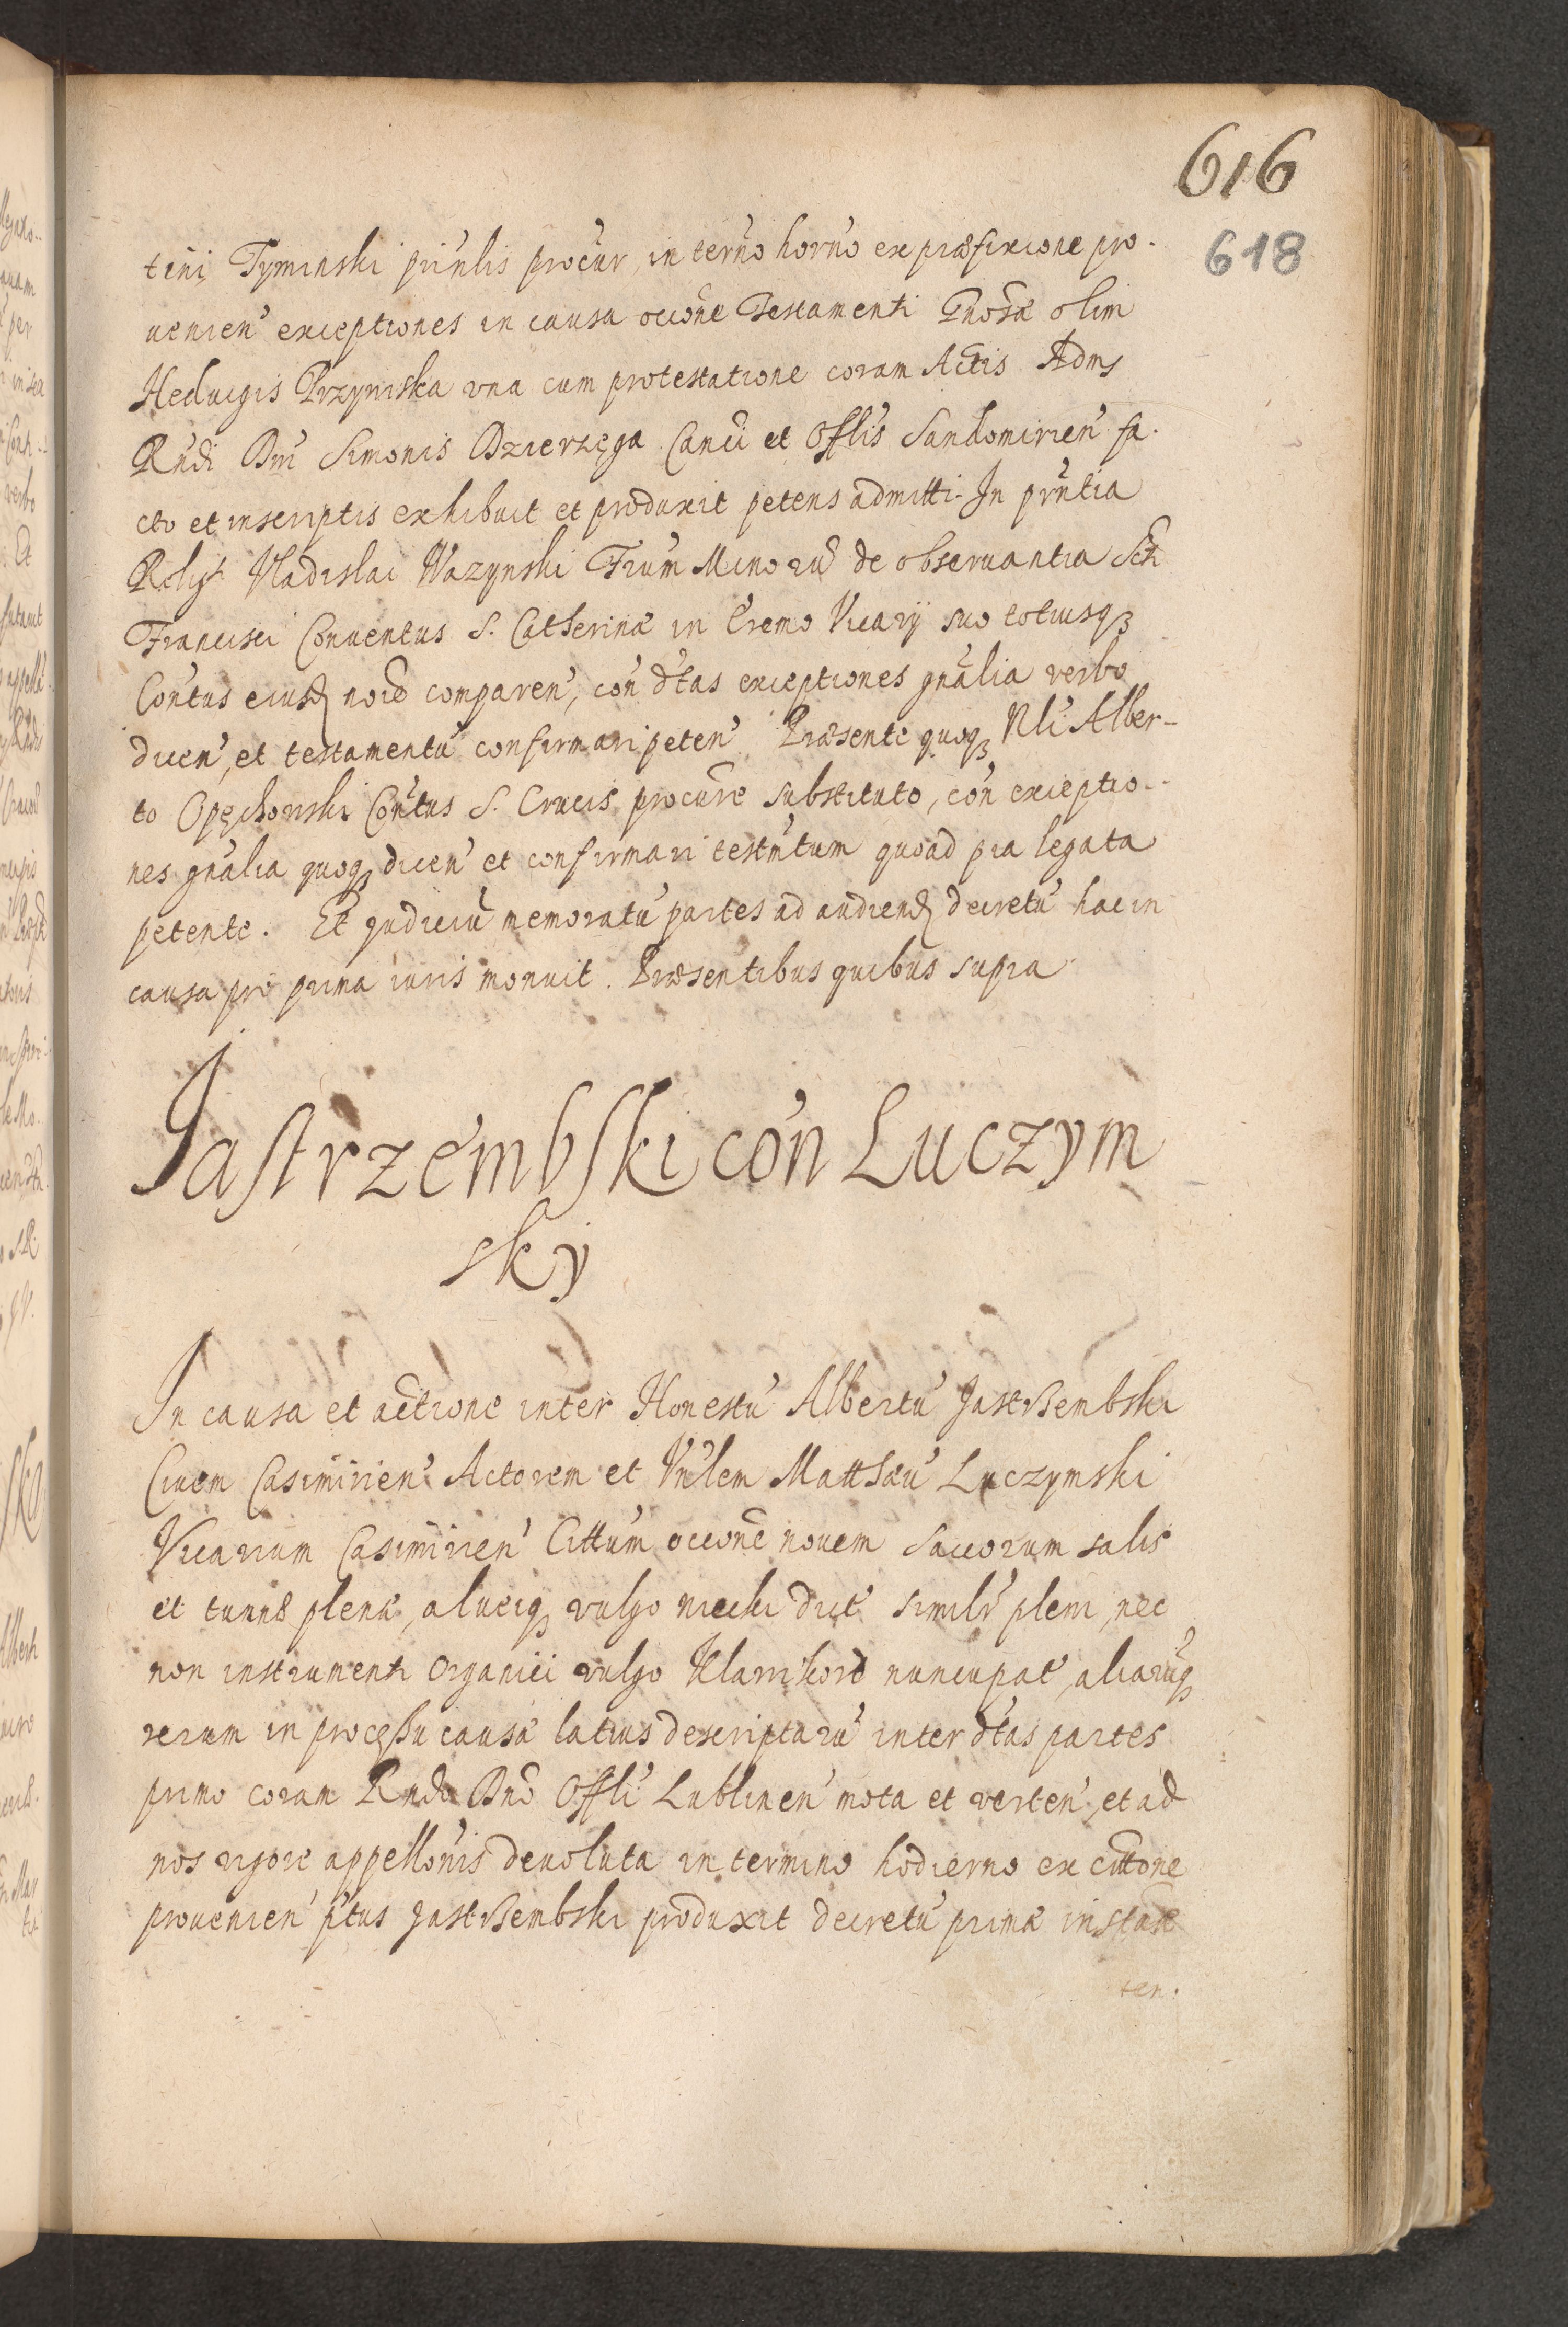 616
618
tini Tyminski prin'lis procur, in ter'no hor'no ex præfixione pro-
uenien' exceptiones in causa occ'one Testamenti Gnosæ olim
Heduigis Przyniska vna cum protestatione coram Actis Adm
R'ndi Dni Simonis Dzierzęga Canci et Off'lis Sandomirien' fa-
cto et inscriptis exhibuit et produxit petens admitti. In prn'tia
Relig. Vladislai Wazynski Fr'um Minorū de obseruantia Sti
Francisci Conuentus S. Catherinæ in Eremo Vicarij suo totiusqȝ
Con'tus eiusd noie comparen', con' d'tas exceptiones gn'alia verbo
dicen', et testamentū confirmari peten'. Præsente quoqȝ Nli Alber-
to Opęchowski Con'tus S. Crucis procur'e substituto, con' exceptio-
nes gn'alia quoqȝ dicen' et confirmari testm'tum quoad pia legata
petente. Et judiciū memoratū partes ad audiend decretū hac in
causa pro prima iuris monuit. Præsentibus quibus supra
Jastrzembski con' Luczym
sky
In causa et actione inter Honestū Albertū Jastrzembski
Ciuem Casimirien' Actorem et Vn'lem Matthæū Luczymski
Vicarium Casimirien' Cittum occ'one nouem saccorum salis
et tunnæ plenæ, alueiqȝ vulgo niecki dict' simil'r pleni, nec
non instrumenti organici vulgo Klawikord nuncupat', aliarūqȝ
rerum in processu causæ latius descriptarū inter d'tas partes
primo coram R'ndo Dno Off'li Lublinen' mota et verten', et ad
nos vigore appellōnis deuoluta in termino hodierno ex citt'one
prouenien' p'tus Jastrzembski produxit decretū primæ instan
ten.